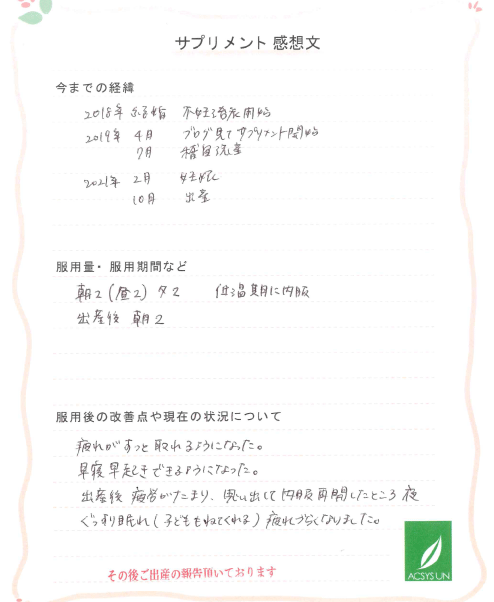 サプリメント 感想文
今までの経緯
2018年 結婚 不妊治療開始
2019年 4月 ブログ見てサプリメント開始
7月 稽留流産
2021年 2月 妊娠
10月 出産
服用量・服用期間など
朝2(昼2) 夕2 低温期に内服
出産後 朝2
服用後の改善点や現在の状況について
疲れがすっと取れるようになった。
早寝早起きできるようになった。
出産後 疲労がたまり、思い出して内服再開したところ 夜
ぐっすり眠れ(子どももねてくれる) 疲れづらくなりました。
その後ご出産の報告頂いております
ACSYSUN